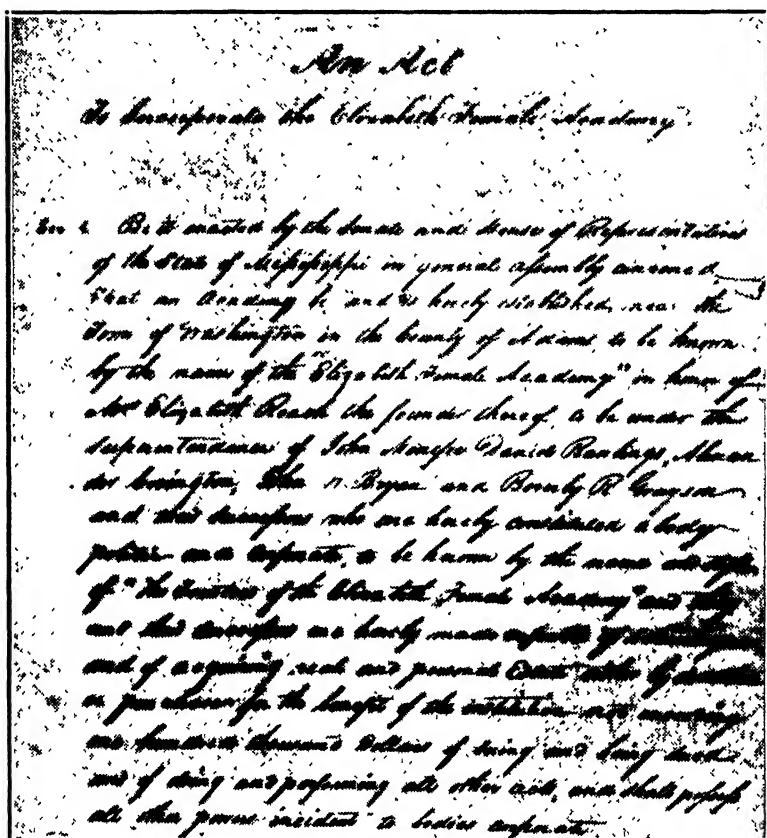 An Act
To Incorporate the Elizabeth Female Academy.
Sec 1. Be it enacted by the Senate and House of Representatives
of the State of Mississippi in general assembly convened
That an Academy be and is hereby established near the
Town of Washington in the County of Adams, to be known
by the name of the "Elizabeth Female Academy" in honor of
Mrs Elizabeth Roach the founder thereof, to be under the
superintendance of John Minor David Rawlings, Alexan
der Covington, John N. Bryan and Beverly R Grayson
and their successors who are hereby constituted a body
politic and corporate, to be known by the name and style
of "The Trustees of the Elizabeth Female Academy" and they
and their successors are hereby made capable of
and of acquiring real and personal Estate either by donation
or purchase for the benefit of the institution not exceeding
one hundred thousand Dollars of suing and being sued
and of doing and performing all other acts, and shall possess
all other powers incident to bodies corporate